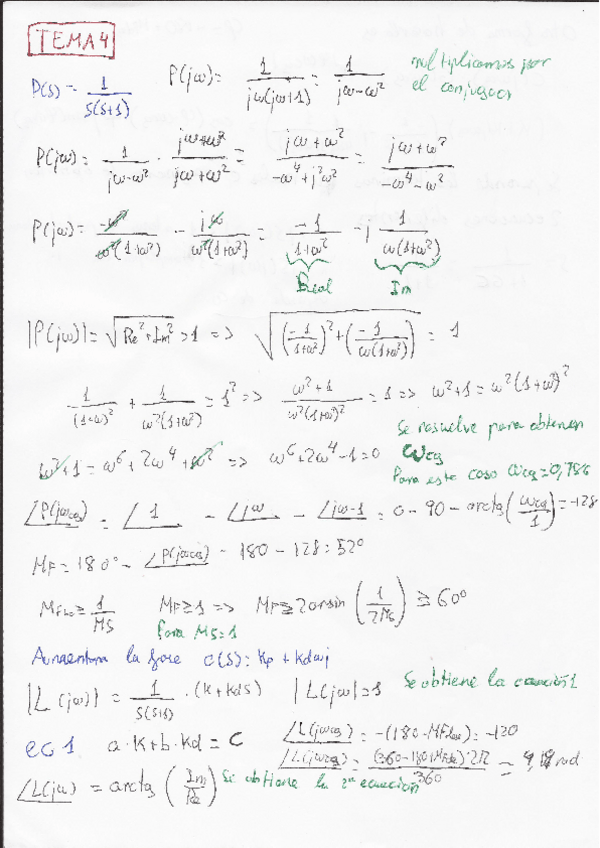 TEMA 4
P(s) = 1/(s(s+1))   P(jω) = 1/(jω(jω+1)) = 1/(jω-ω²)   multiplicamos por el conjugado
P(jω) = 1/(jω-ω²) · (jω+ω²)/(jω+ω²) = (jω+ω²)/(-ω⁴+j²ω²) = (jω+ω²)/(-ω⁴-ω²)
P(jω) = -ω²/(ω²(1+ω²)) - jω/(ω²(1+ω²)) = -1/(1+ω²) - j 1/(ω(1+ω²))
Real   Im
|P(jω)| = √(Re²+Im²) = 1 => √((-1/(1+ω²))² + (-1/(ω(1+ω²)))) = 1
1/(1+ω)² + 1/(ω²(1+ω²)) = 1² => (ω²+1)/(ω²(1+ω²)²) = 1 => ω²+1 = ω²(1+ω²)²
Se resuelve para obtener ωcg
ω²+1 = ω⁶+2ω⁴+ω² => ω⁶+2ω⁴-1=0
Para este caso ωcg=0,786
∠P(jωcg) = ∠1 - ∠jω - ∠jω-1 = 0 - 90 - arctg(ωcg/1) = -128
MF = 180° - ∠P(jωcg) - 180 - 128 = 52°
MFLoo ≥ 1/MS   MF ≥ 1 => MF ≥ 2arsin(1/2Ms) ≥ 60°
Para MS=1
Aumentan la fase C(s): Kp + Kdωj
|L(jω)| = 1/(s(s+1)) · (k+kds)   |L(jω)|=1   Se obtiene la ecuación 1
ec 1   a·K+b·Kd = C   ∠L(jωcg) = -(180-MFLoo) = -120
∠L(jωcg) = (360-180+MFloo)·2π/360 =   rad
∠L(jω) = arctg(Im/Re)   Se obtiene la 2ª ecuación